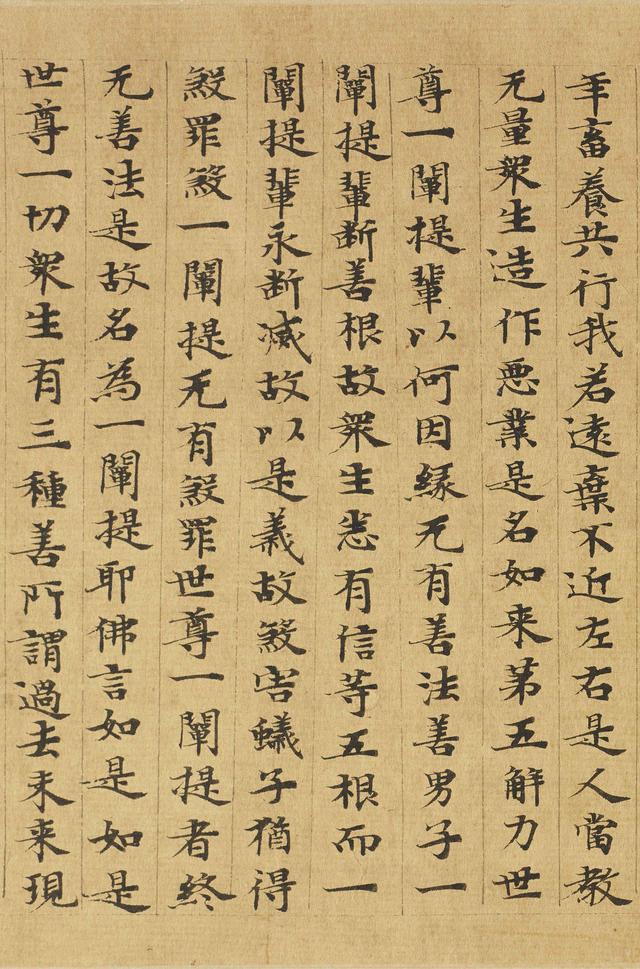 年畜養共行我若遠棄不近左右是人當教
无量衆生造作悪業是名如来第五解力世
尊一闡提輩以何因緣无有善法善男子一
闡提輩断善根故衆生悉有信等五根而一
闡提輩永断滅故以是義故煞害蟻子猶得
煞罪煞一闡提无有煞罪世尊一闡提者終
无善法是故名為一闡提耶佛言如是如是
世尊一切衆生有三種善所謂過去未来現